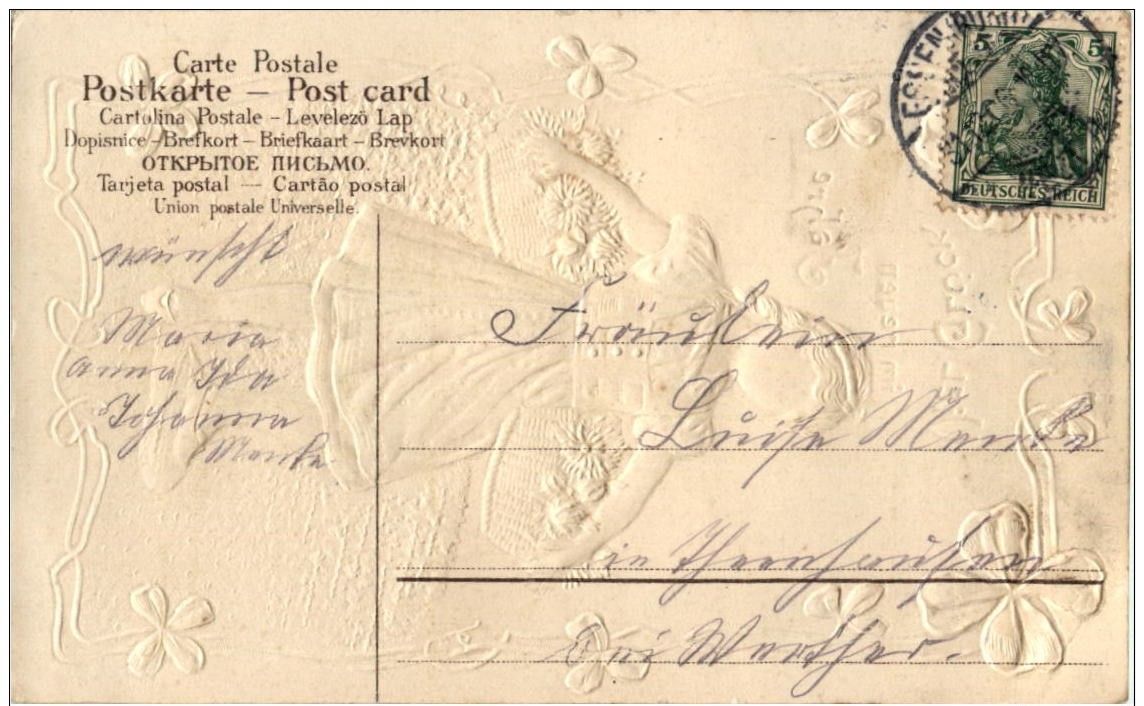 Carte Postale
Postkarte – Post card
Cartolina Postale – Levelező Lap
Dopisnice – Brefkort – Briefkaart – Brevkort
ОТКРЫТОЕ ПИСЬМО.
Tarjeta postal — Cartão postal
Union postale Universelle.
wünscht
Maria
Anna Ida
Johanna
5 5
DEUTSCHES REICH
ESSEN
Fräulein
Luise
in
bei Werther.